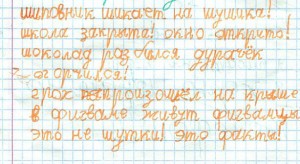 шиповник шикает на шушика!
школа закрыта! окно открыто!
шоколад разбился дурачёк
огорчился!
грох произошёл на крыше
в фигваме живут фигвамцы
это не шутки! это факты!